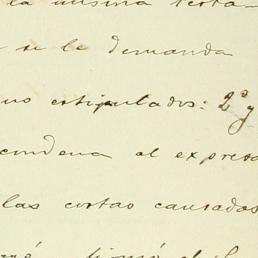 la misma testa-
se le demanda
estipulados: 2º y
condena al expresa
las costas causadas
firmó el